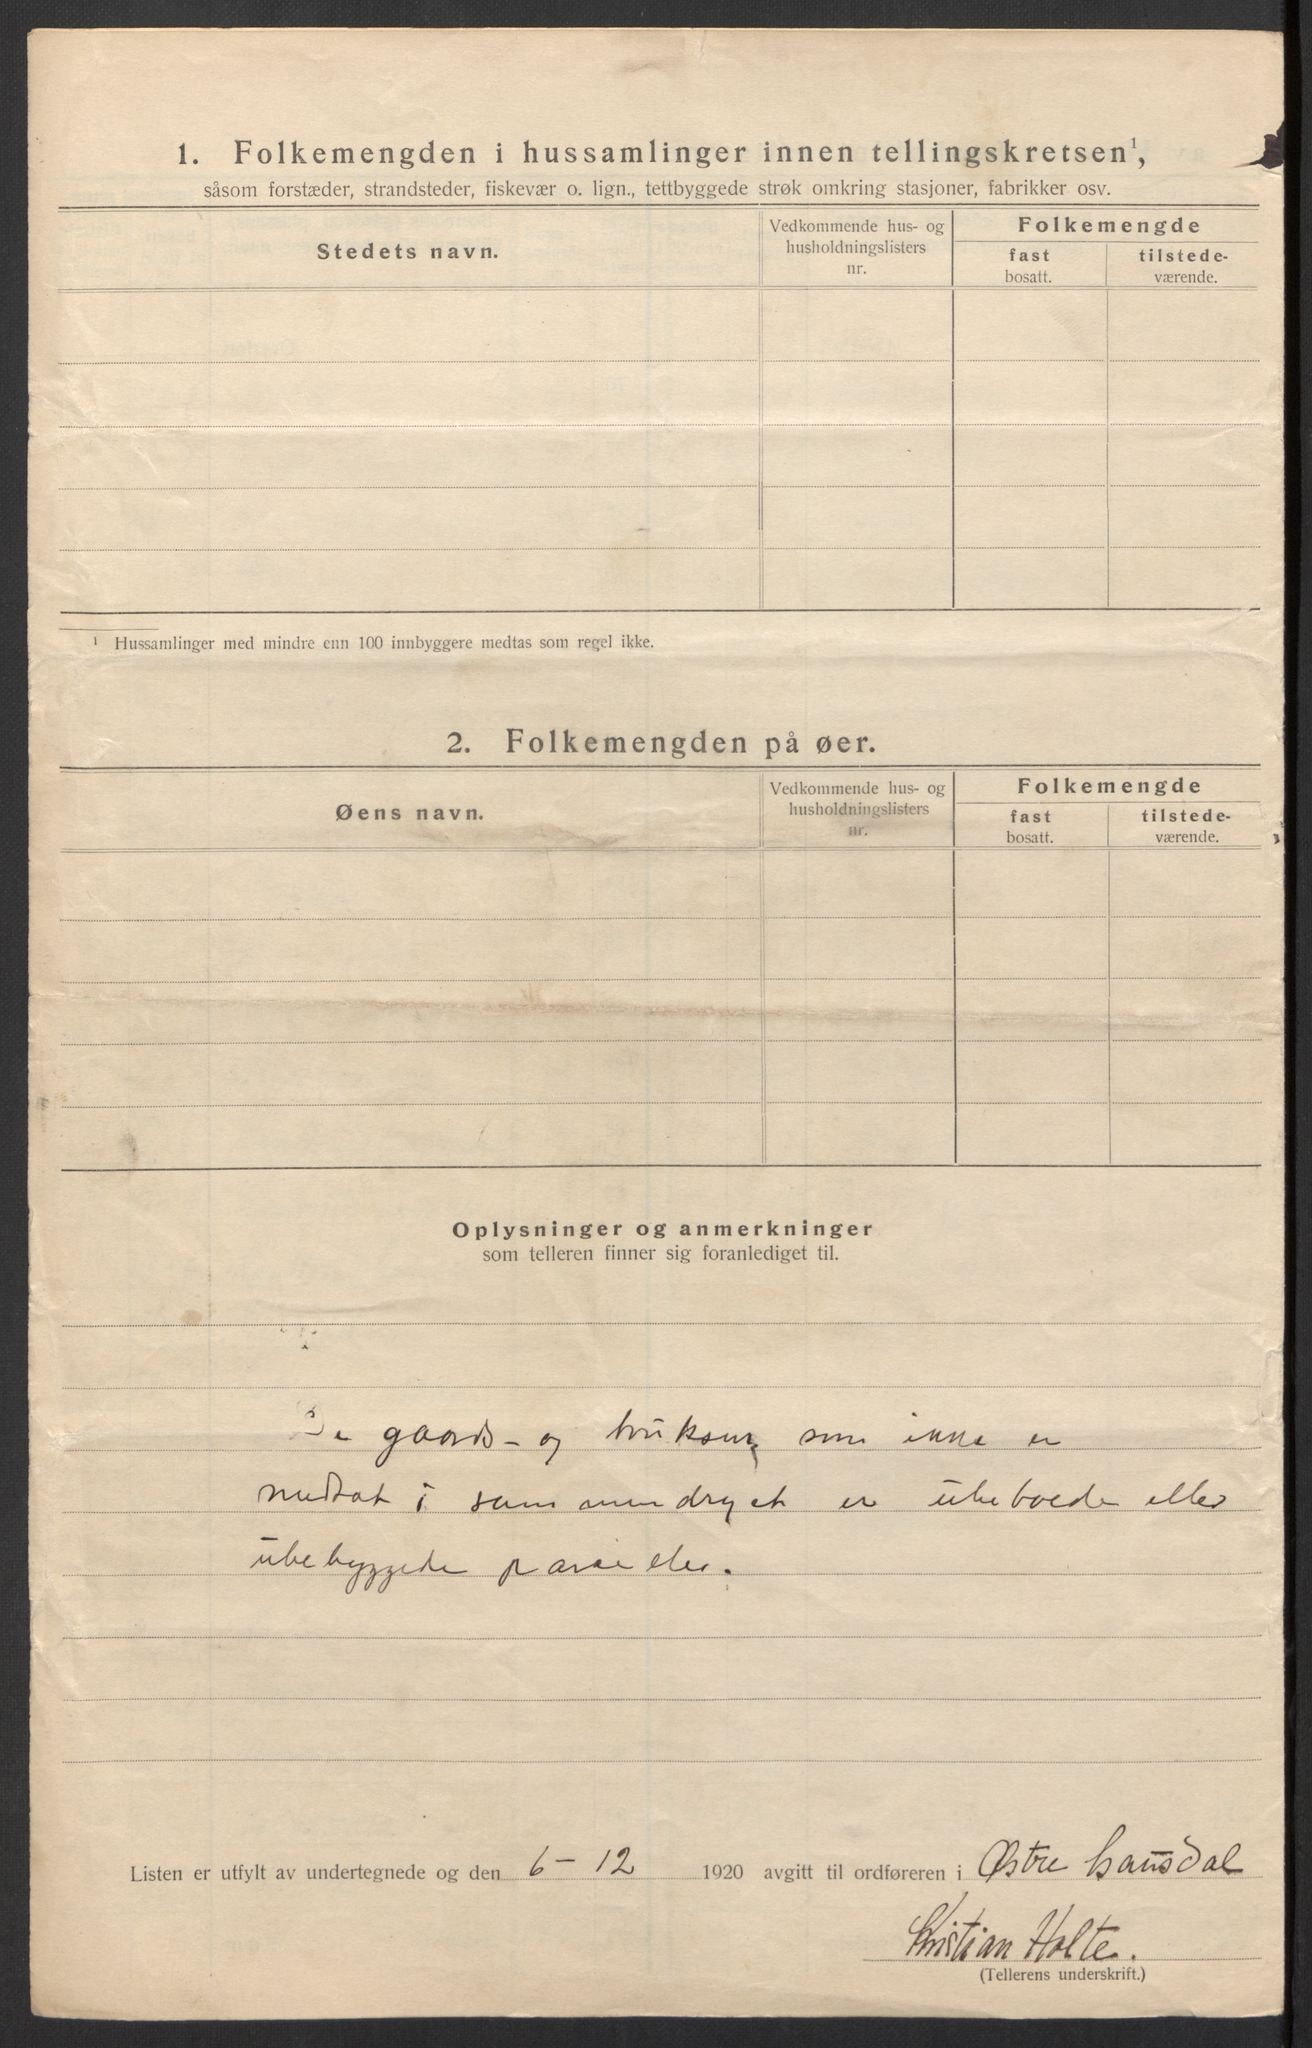 1. Folkemengden i hussamlinger innen tellingskretsen¹,
såsom forstæder, strandsteder, fiskevær o. lign., tettbyggede strøk omkring stasjoner, fabrikker osv.
Stedets navn.
Vedkommende hus- og
husholdningslisters
nr.
Folkemengde
fast
bosatt.
tilstede-
værende.
¹ Hussamlinger med mindre enn 100 innbyggere medtas som regel ikke.
2. Folkemengden på øer.
Øens navn.
Vedkommende hus- og
husholdningslisters
nr.
Folkemengde
fast
bosatt.
tilstede-
værende.
Oplysninger og anmerkninger
som telleren finner sig foranlediget til.
De gaards- og bruksnr, som ikke er
medtat i sammendraget er ubeboede eller
ubebyggede parseller.
Listen er utfylt av undertegnede og den 6-12 1920 avgitt til ordføreren i Østre Gausdal
Kristian Holte.
(Tellerens underskrift.)